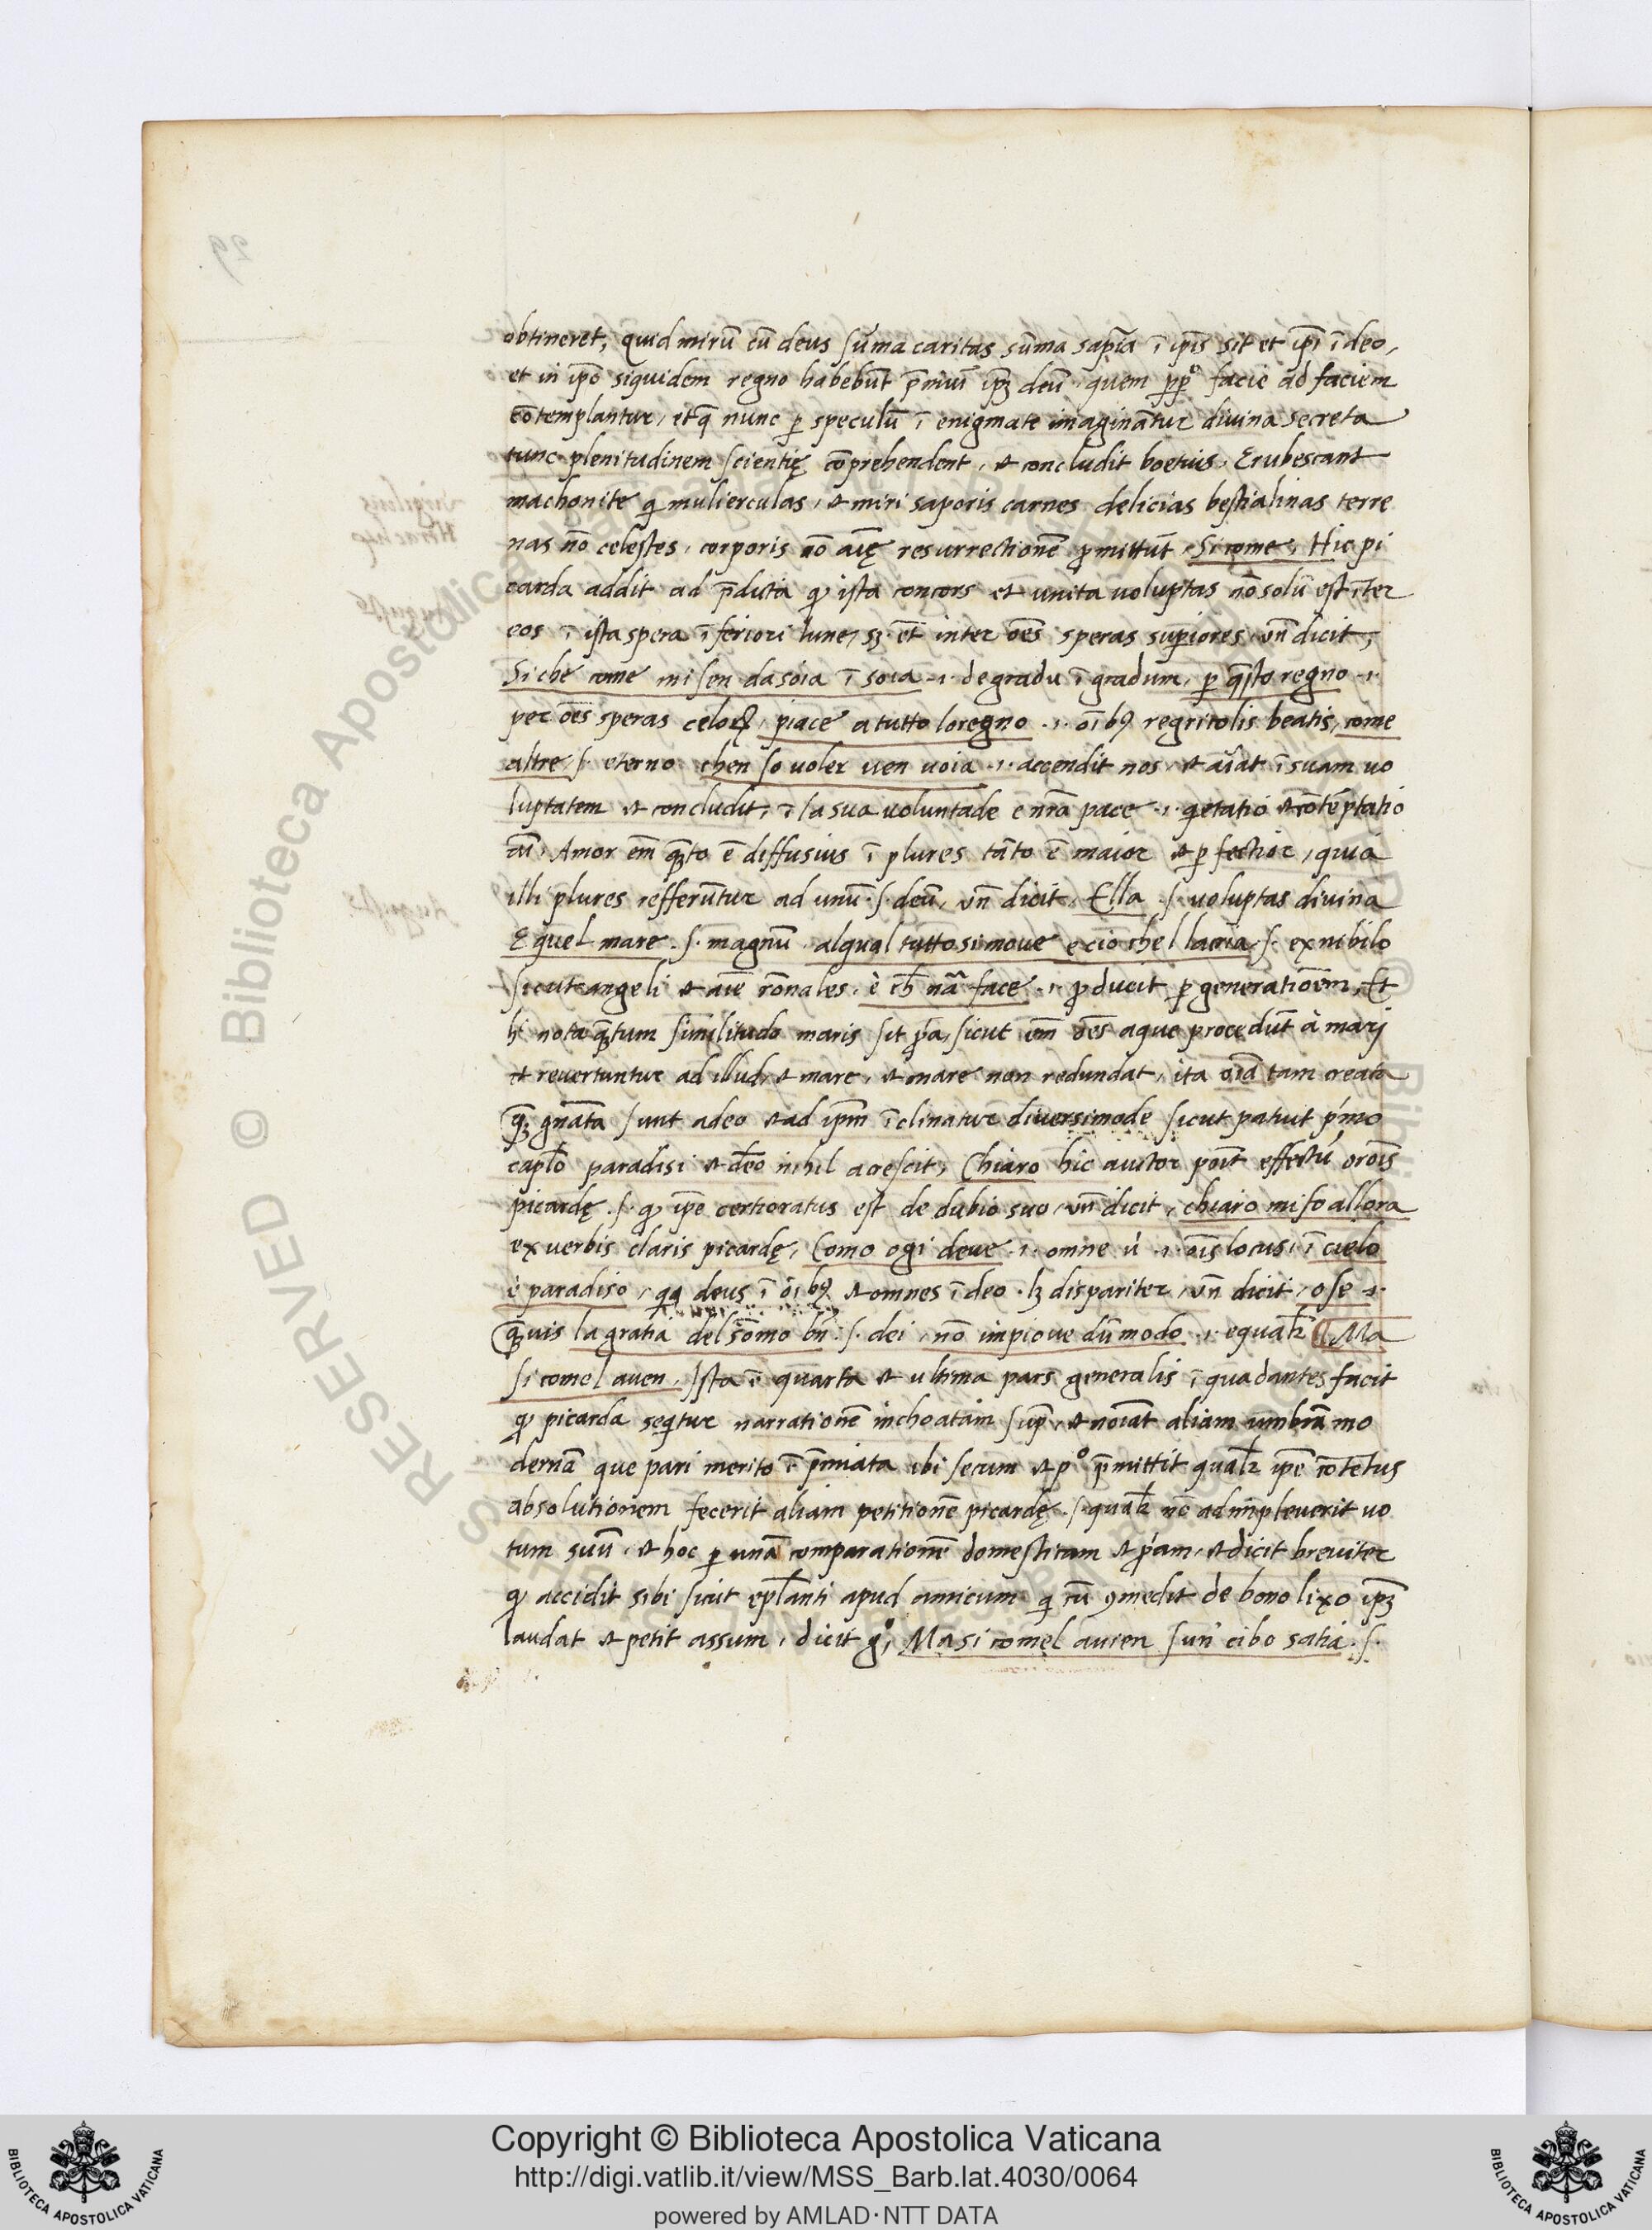 obtineret, quid mirũ cũ deus sũma caritas sũma sapĩa ĩ ip̃is sit et ip̃i ĩ deo,
et in ip̃o siquidem regno habebũt p̃miũ ipʒ deũ, quem pp̲° facie ad faciem
cõtemplantur, etq̃ nunc p̲ speculũ ĩ enigmate imaginãtur divina secreta
tunc plenitudinem scientię cõprehendent, et concludit boetius, Erubescant
machonite qi mulierculas, et miri saporis carnes delicias bestialinas terre
nas nõ celestes, corporis nõ aĩę resurrectionẽ p̲mittũt, Si come, Hic pi
carda addit ad p̃dicta qp ista concors et unita voluptas nõ solũ est ĩter
eos ĩ ista spera ĩferiori lune, sʒ ẽt inter oẽs speras sup̲iores, uñ dicit,
Si che come mi sen da soia ĩ soia .i. de gradu ĩ gradum, p̲ q̃sto regno .i.
per oẽs speras celoꝝ, piace a tutto loregno .i. oĩbꝯ regricolis beatis, come
altre .s. eterno chen so voler ven voia .i. accendit nos, et aĩat ĩ suam vo
luptatem et concludit, ĩ la sua voluntade e nr̃a pace .i. qietatio et cõtẽptatio
aĩ, Amor em̃ qʒto ẽ diffusius ĩ plures tãto ẽ maior et p̲fectior, quia
illi plures refferũtur ad unũ .s. deũ, uñ dicit, Ella .s. voluptas divina
E quel mare .s. magnũ, alqual tutto si move e cio chel lacria .s. ex nihilo
sicut angeli et aĩe rõnales, è ch̃ nã face .i. p̲ducit p̲ generationẽm, Et
hi nota qʒtum similitudo maris sit p̲p̃a, sicut em̃ oẽs aque procedũt à marj
et revertuntur ad illud, et mare, et mare non redundat, ita oĩa tam creata
qʒ gñata sunt adeo et ad ipm̃ ĩclinatur diversimode sicut patuit pimo
capl̃o paradisi et deo nihil acrescit, Chiaro hic auctor põit effectũ orõis
picardę .s. qp ip̃e certioratus est de dubio suo, uñ dicit, chiaro mi fo allora
ex verbis claris picardę, Como ogi deve .i. omne ù .i. oĩs locus, ĩ cielo
è paradiso, qa deus ĩ oĩbꝯ et omnes ĩ deo, lʒ dispariter, uñ dicit, ose .i.
qʒvis la gratia del sõmo bñ .s. dei, nõ impiove dũ modo .i. equalr̃ Ma
si comel aven, Ista ẽ quarta et ultima pars generalis ĩ qua dantes facit
qp picarda seqitur narrationẽ inchoatam supr̃, et noĩat aliam umbrã mo
dernã que pari merito ẽ p̃miata ibi secum et p° p̃mittit qualr̃ ip̃e cõtẽtus
absolutionem fecerit aliam petitionẽ picardę .s. qualr̃ nõ adimpleverit vo
tum suũ, et hoc p̲ unã comparationẽ domesticam et p̲p̃iam, et dicit breviter
qp accidit sibi sicut epl̃anti apud amicum qi cũ ꝯmedit de bono lixo ipʒ
laudat et petit assum, dicit g°, Ma si comel aven s un cibo satia .s.
Copyright © Biblioteca Apostolica Vaticana
http://digi.vatlib.it/view/MSS_Barb.lat.4030/0064
powered by AMLAD·NTT DATA